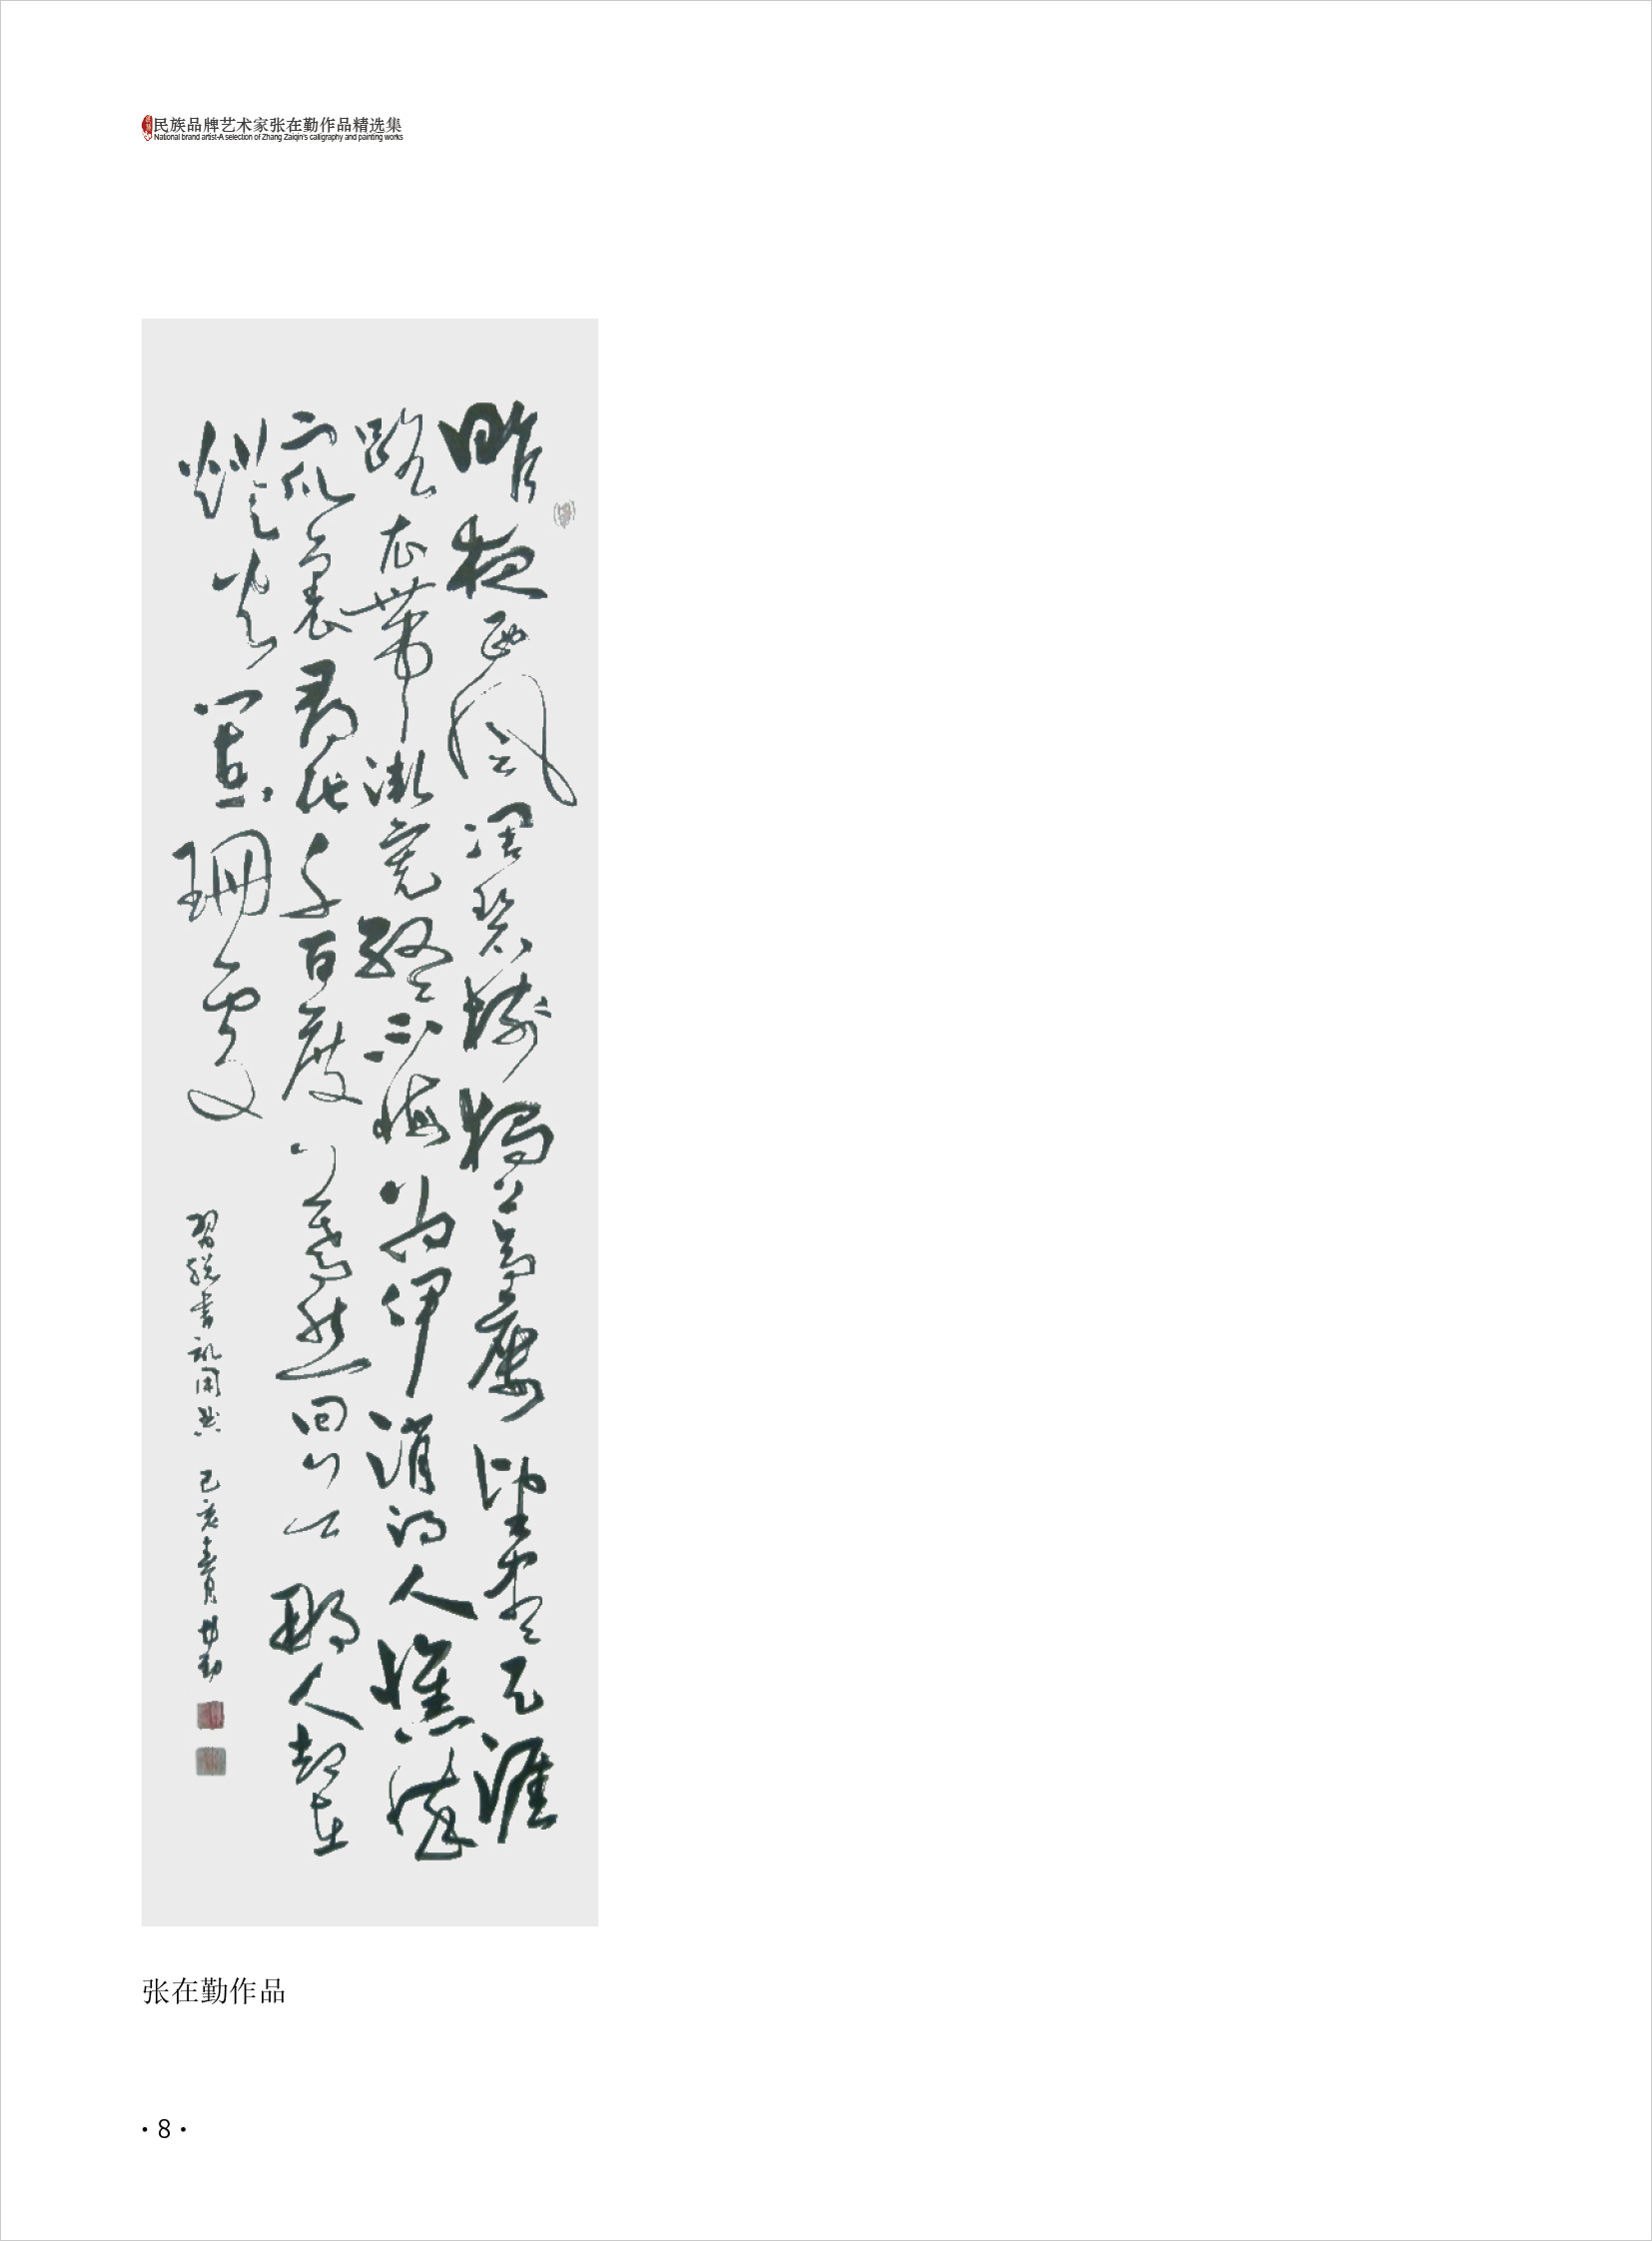 民族品牌艺术家张在勤作品精选集
National brand artist-A selection of Zhang Zaiqin's calligraphy and painting works
昨夜西風凋碧樹獨上高樓望盡天涯
路衣帶漸寬終不悔為伊消得人憔悴
眾裏尋他千百度驀然回首那人却在
燈火闌珊處
習總書記用典 己亥春月在勤
张在勤作品
·8·